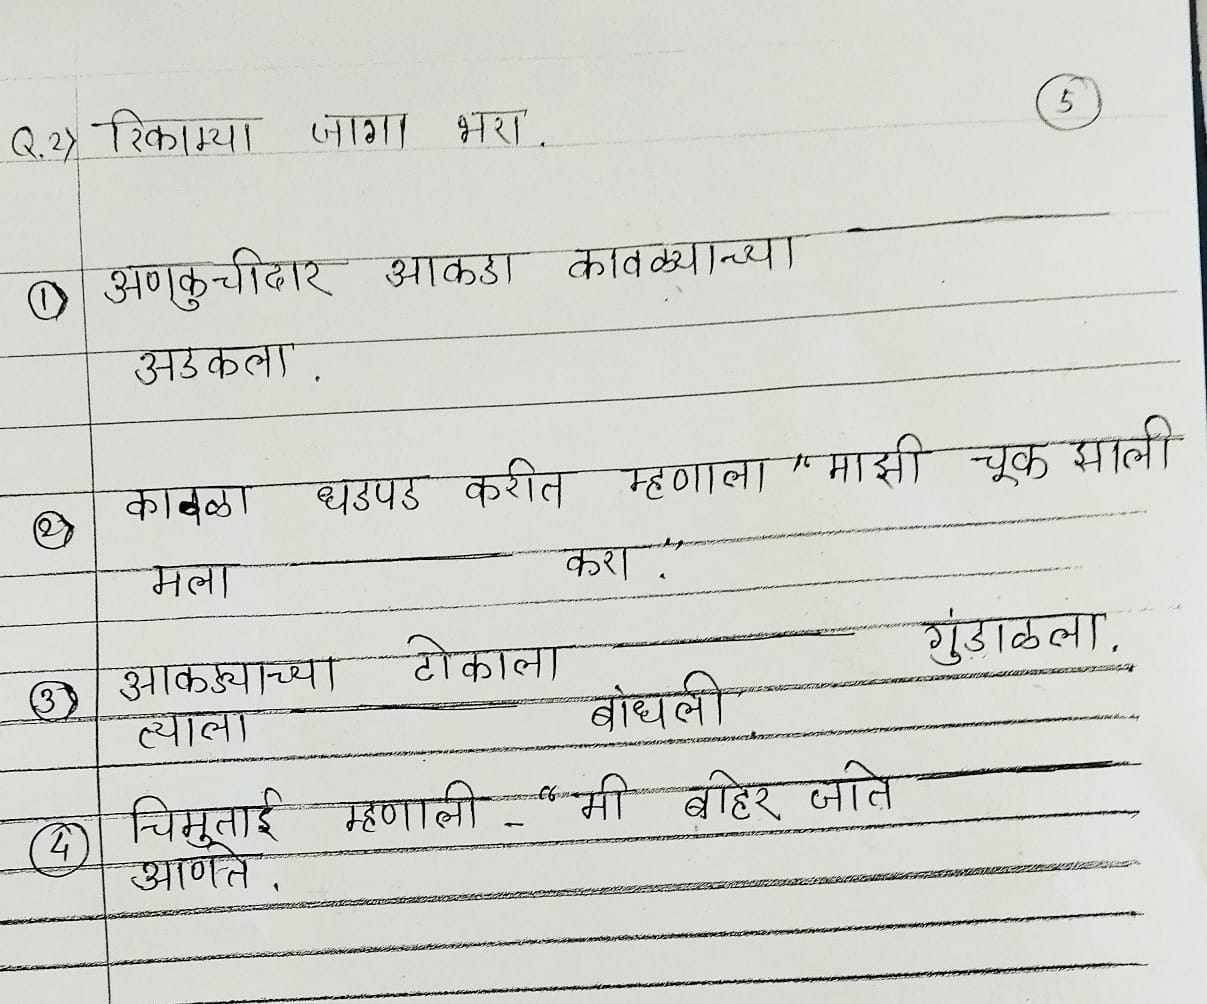 5
Q.2) रिकाम्या जागा भरा.
① अणकुचीदार आकडा कावळ्याच्या ______
अडकला.
② कावळा धडपड करीत म्हणाला "माझी चूक झाली
मला ______ करा."
③ आकड्याच्या टोकाला ______ गुंडाळला.
त्याला ______ बांधली
④ चिमुताई म्हणाली - "मी बाहेर जाते ______
आणते.